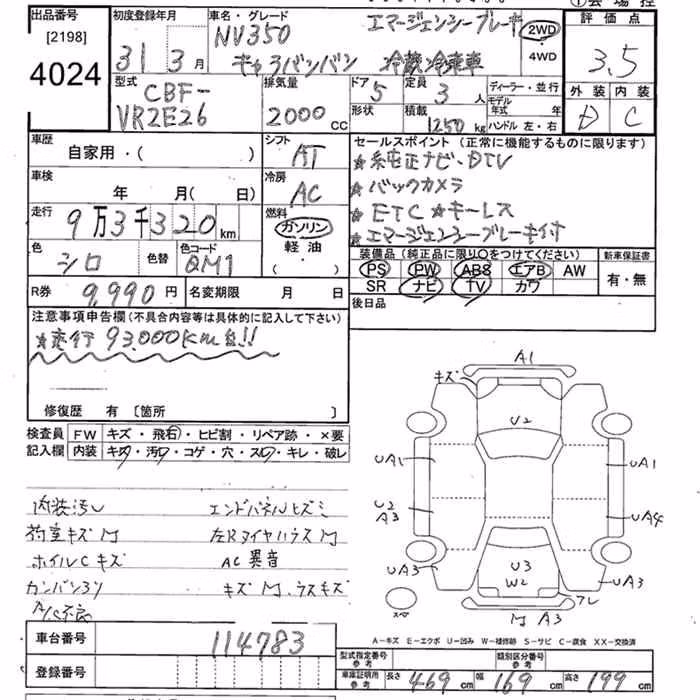 出品番号
[2198]
4024
初度登録年月
31 3月
車名・グレード
NV350
エマージェンシーブレーキ
キャラバンバン 冷蔵冷凍車
2WD
4WD
評価点
3.5
外装 内装
D C
型式
CBF-
VR2E26
排気量
2000 CC
ドア
5
定員
3人
形状
積載
1250 kg
ディーラー・並行
モデル年式 年
ハンドル 左・右
車歴
自家用・( )
シフト
AT
車検
年 月( 日)
冷房
AC
走行
9万3千320km
燃料
ガソリン
軽油
・( )
色
シロ
色替
色コード
QM1
R券
9,990円
名変期限 月 日
セールスポイント(正常に機能するものに限ります)
★純正ナビ・DTV
★バックカメラ
★ETC ★キーレス
★エマージェンシーブレーキ付
装備品(純正品に限り○をつけてください)
PS PW ABS エアB AW
SR ナビ TV カワ
新車保証書
有・無
後日品
注意事項申告欄(不具合内容等は具体的に記入して下さい)
★走行93,000km台!!
修復歴 有 〔箇所 〕
検査員記入欄
FW キズ・飛石・ヒビ割・リペア跡・×要
内装 キズ・汚レ・コゲ・穴・スレ・キレ・破レ
内装汚レ エンドパネルヒズミ
荷室キズM 左Rタイヤハウス M
ホイルCキズ AC異音
カンバン入り キズM、ラスキズ
A/C不良
A1
キズ
U2
UA1
UA1
U2
A3
UA4
UA3
U3
W2
UA3
フレ
M A3
A-キズ E-エクボ U-凹み W-補修跡 S-サビ C-腐食 XX-交換済
車台番号
114783
登録番号
型式指定番号 参考
類別区分番号 参考
車庫証明用 参考
長さ 469cm 幅 169cm 高さ 199cm